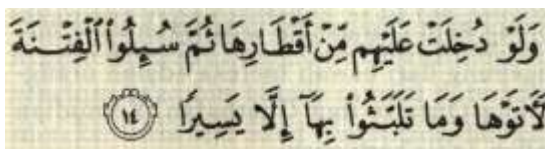 وَلَوْ دُخِلَتْ عَلَيْهِم مِّنْ أَقْطَارِهَا ثُمَّ سُئِلُوا۟ ٱلْفِتْنَةَ
لَأَتَوْهَا وَمَا تَلَبَّثُوا۟ بِهَآ إِلَّا يَسِيرًا ١٤